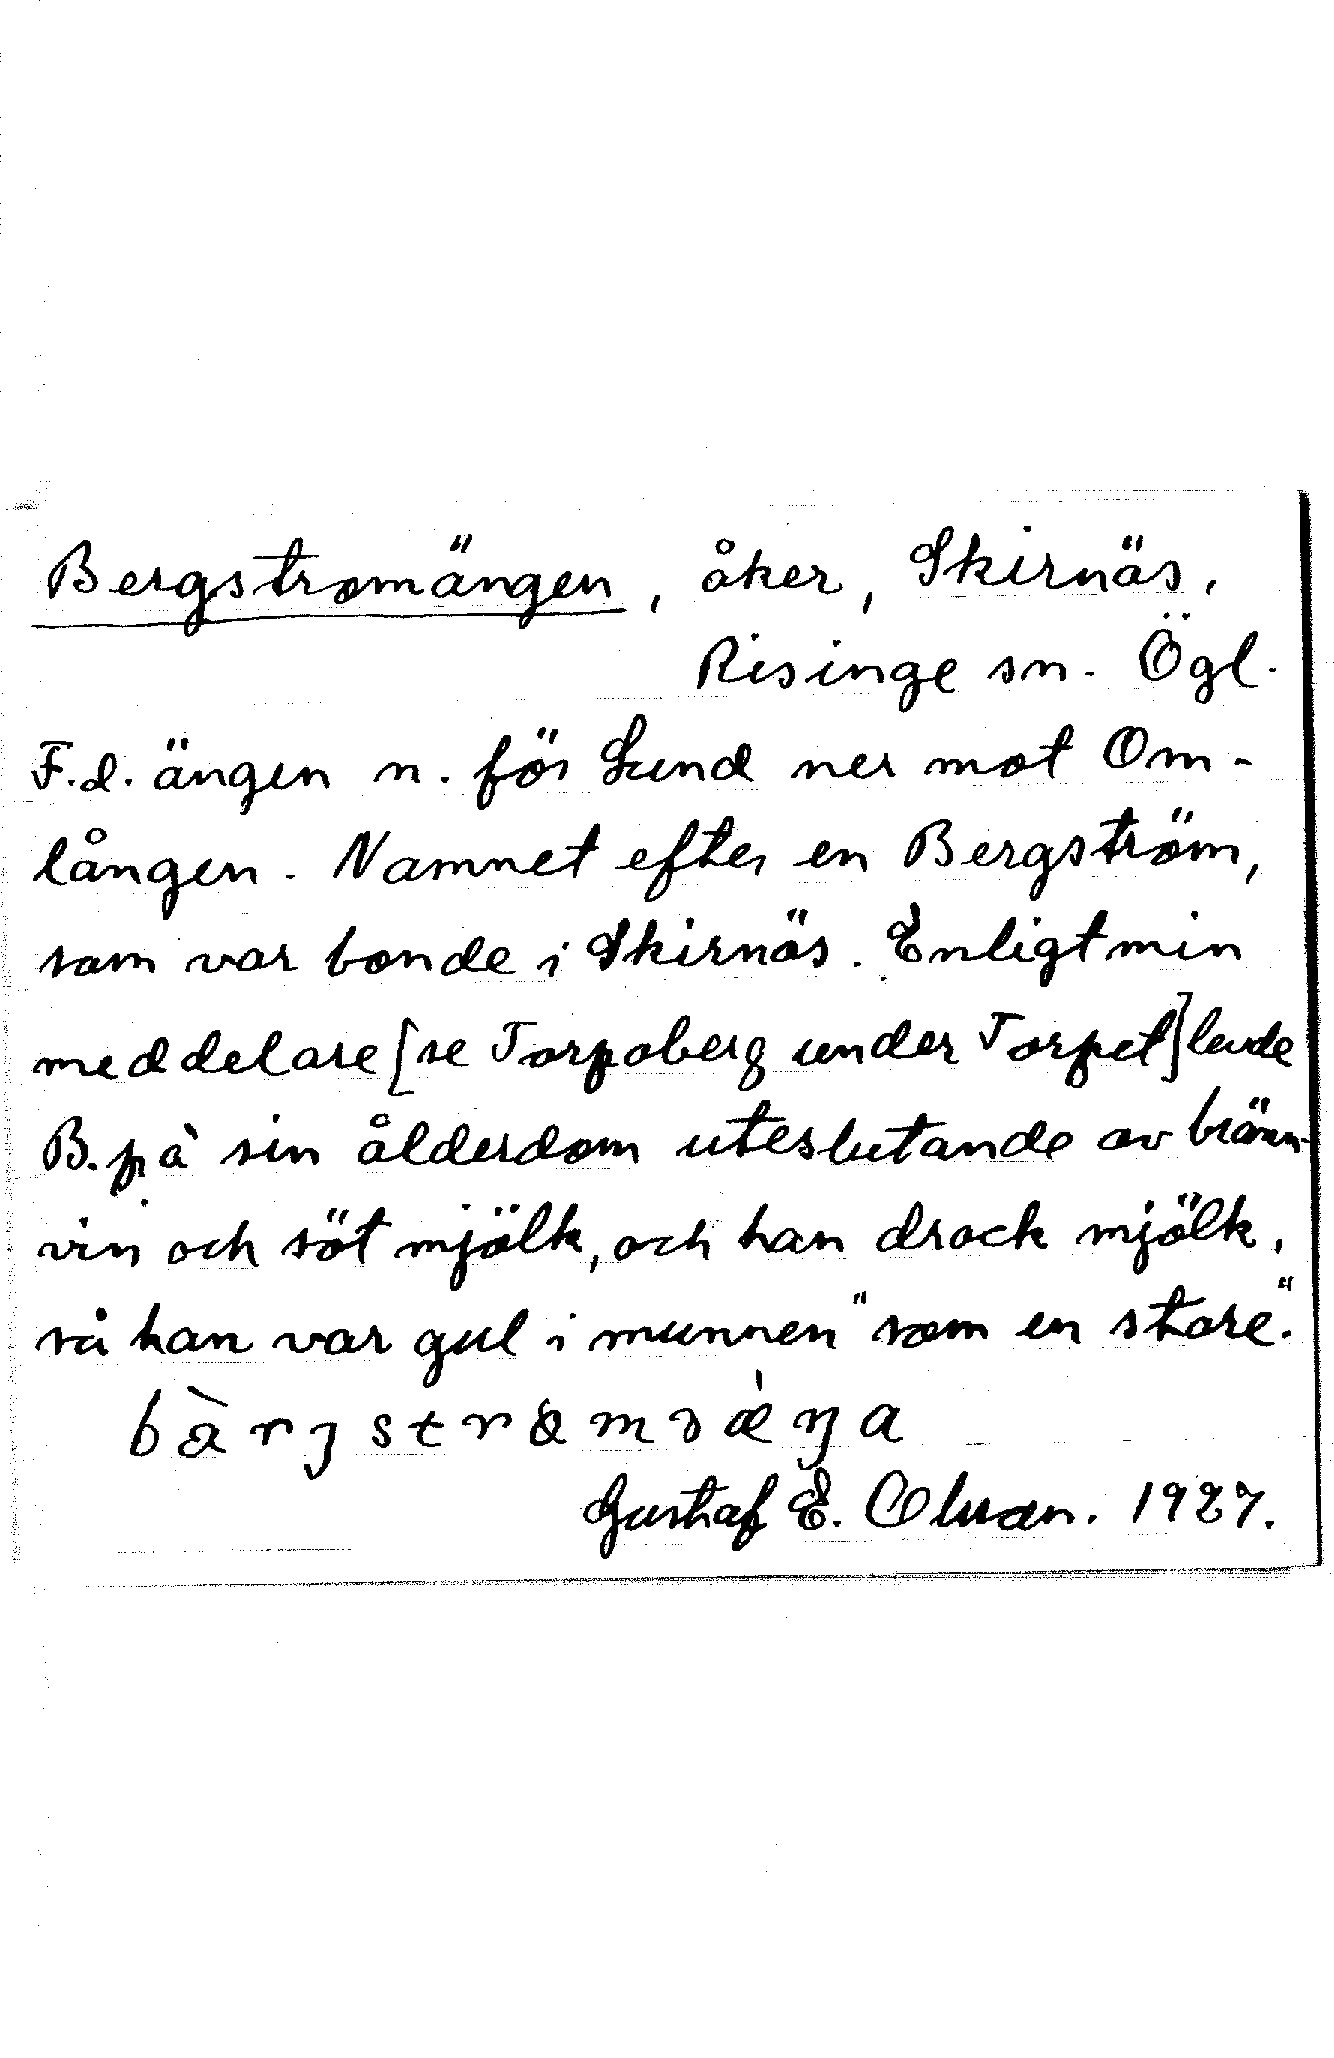 Bergstromängen, åker, Skirnäs,
Risinge sn. Ögl.
F.d. ängen n. för Lund ner mot Om-
lången. Namnet efter en Bergström,
som var bonde i Skirnäs. Enligt min
meddelare [se Torpaberg under Torpet] levde
B. på sin ålderdom uteslutande av bränn-
vin och söt mjölk, och han drack mjölk,
så han var gul i munnen "som en stare".
Gustaf E. Olsson. 1927.